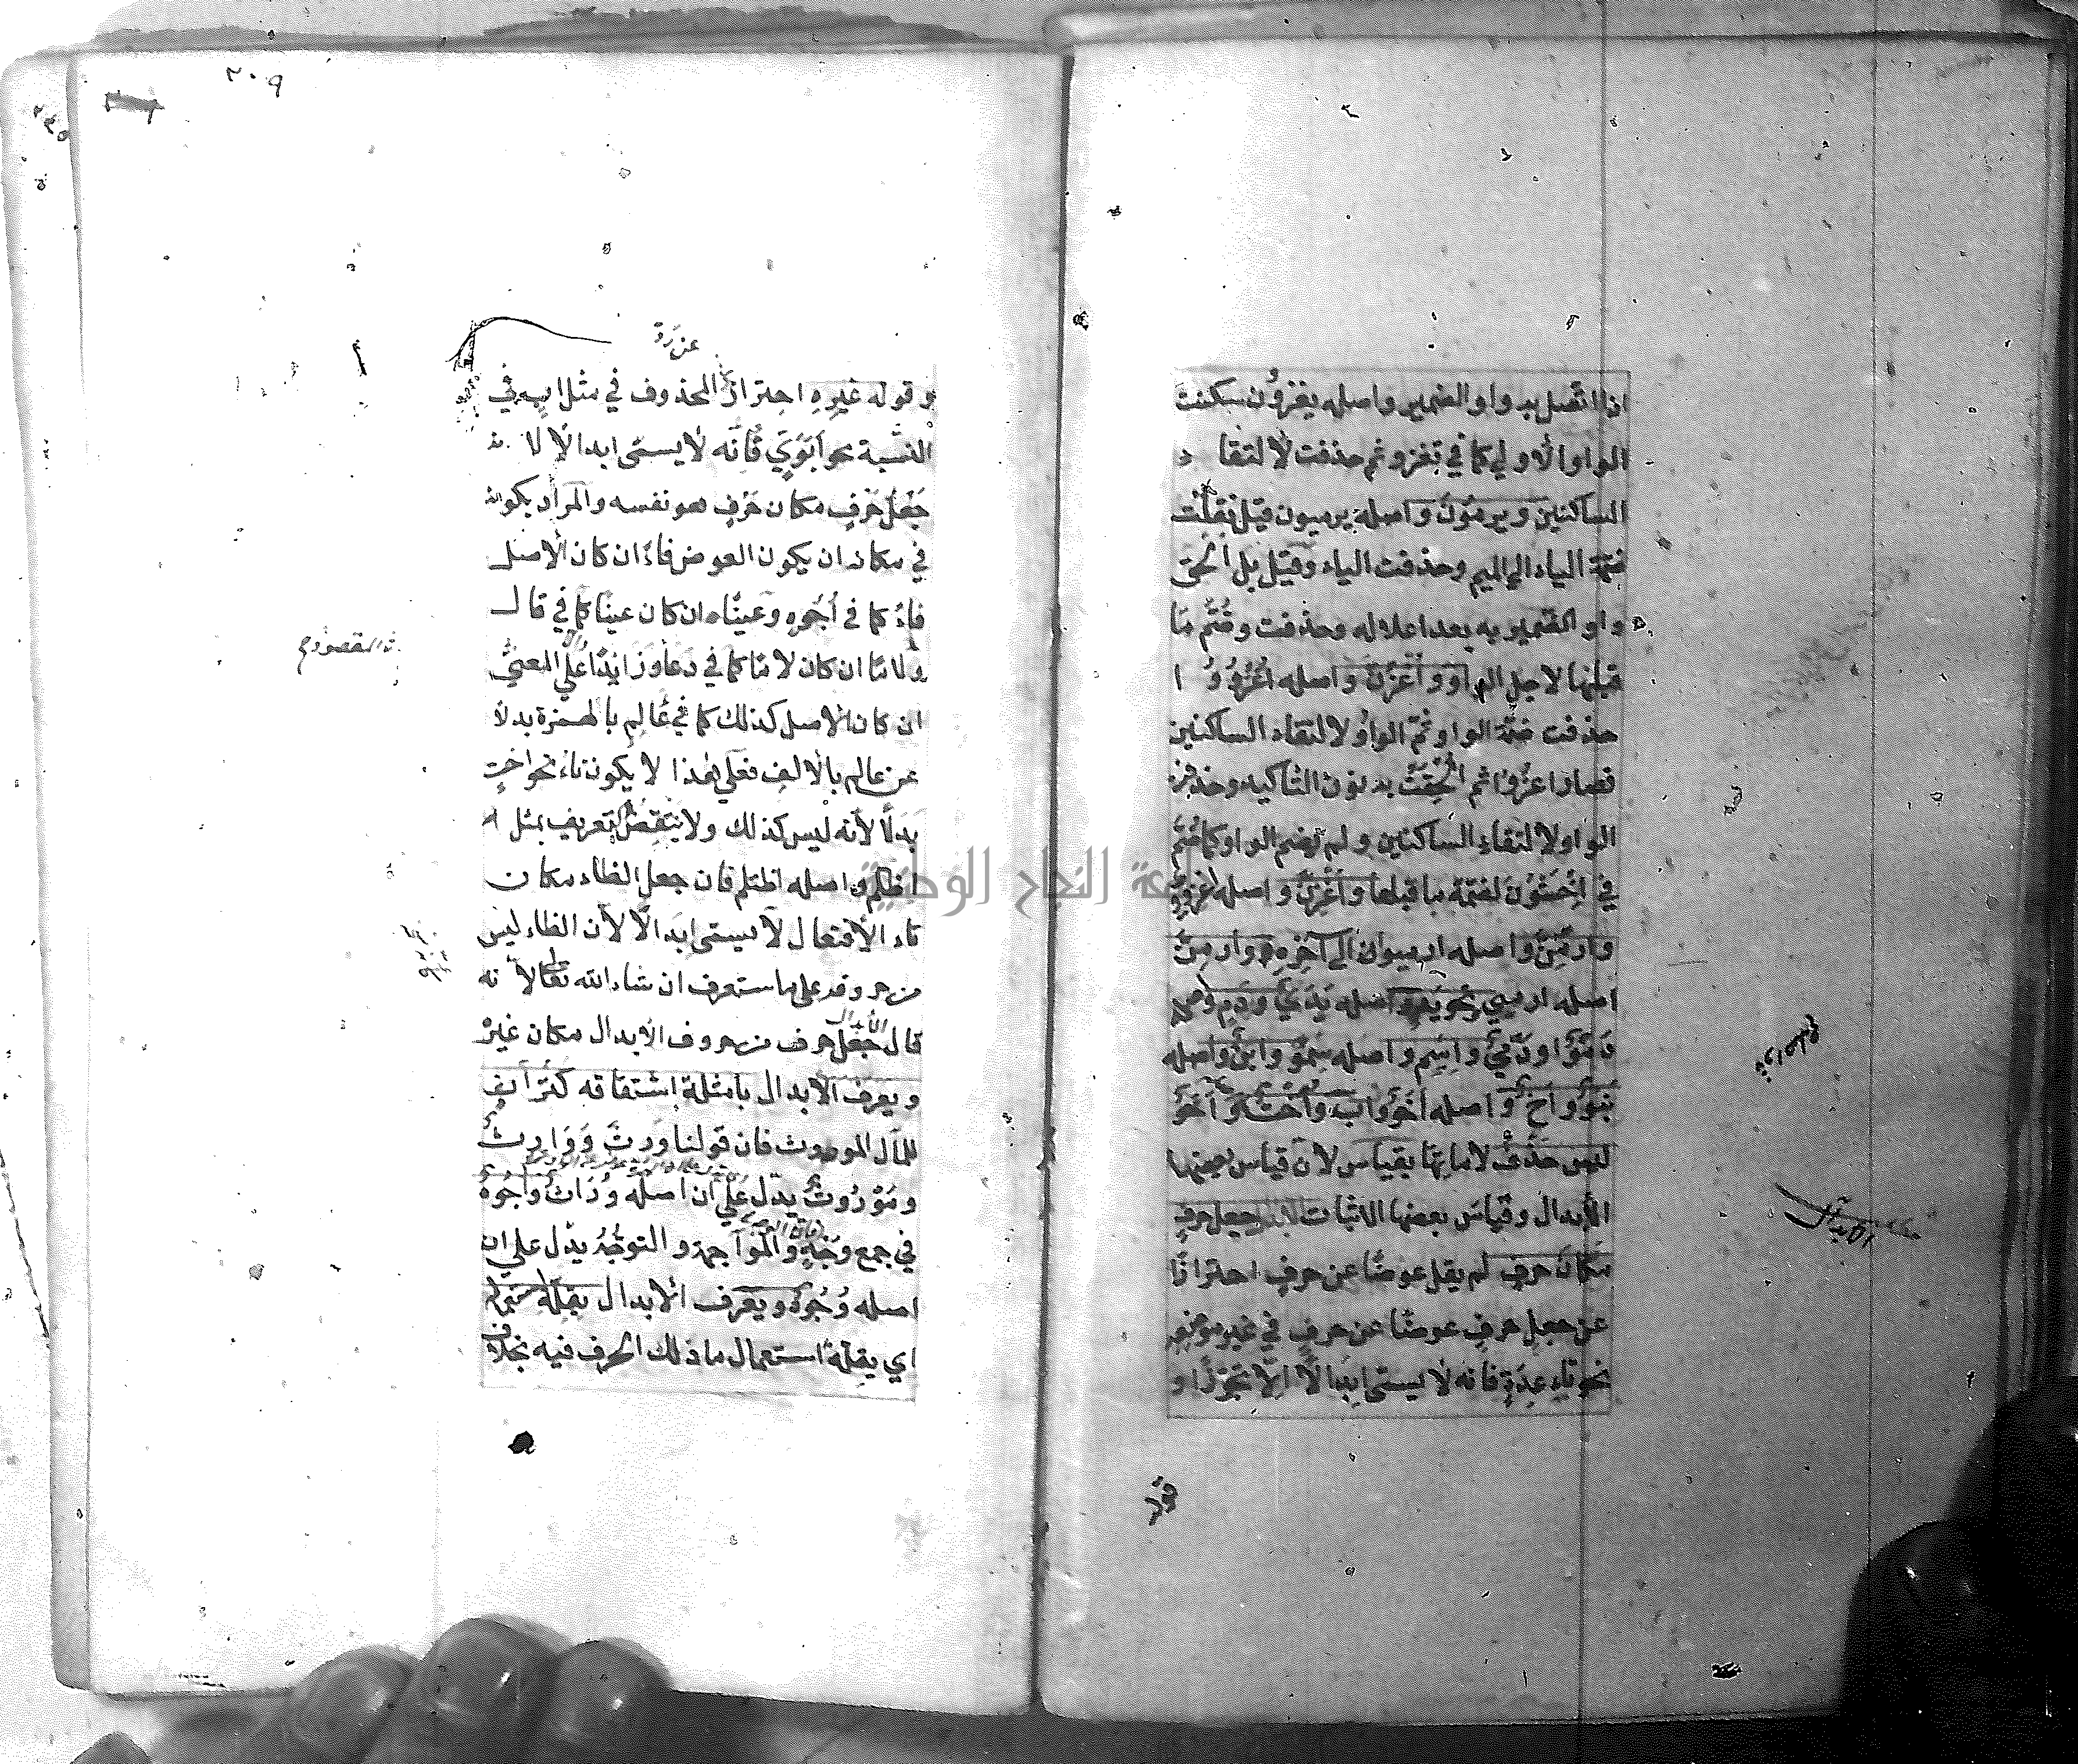 اذا اتصل به واو الضمير واصله يغزوون سكنت
الواو الاولي كما في تغزو ثم حذفت لالتقا
الساكنين ويرمون واصله يرميون قيل نقلت
ضمة الياء الي الميم وحذفت الياء وقيل بل الحق
واو الضمير به بعد اعلاله وحذفت وضم ما
قبلها لاجل الواو واغزن واصله اغزوو ا
حذفت ضمة الواو ثم الواو لالتقاء الساكنين
فصار اغزوا ثم الحقت به نون التاكيد وحذف
الواو لالتقاء الساكنين ولم تضم الواو كما ضم
في اخشون لضمة ما قبلها واغزن واصله
وارمن واصله ارميون الى آخره وارمن
اصله ارميي نحو يد واصله يدي ودم
دمو او دمي واسم واصله سمو وابن واصله
بنو واخ واصله اخو واب واخت اخو
ليس حذف لاماتها بقياس لان قياس بعضها
الابدال وقياس بعضها الاثبات الابدال جعل حرف
مكان حرف لم يقل عوضا عن حرف احترازا
عن جعل حرف عوضا عن حرف في غير موضعه
نحو تاء عدة فانه لا يسمى ابدالا الا تجوزا و
الابدال
٢٠٩
وقوله غيره احتراز المحذوف في مثل اب في
النسبة نحو ابوي فانه لا يسمى ابدالا لا نه
جعل حرف مكان حرف هو نفسه والمراد بكونه
في مكانه ان يكون العوض فاء ان كان الاصل
فاء كما في أجوه وعينا ان كان عينا كما في قال
ولاما ان كان لاما كما في دعا وزائدا علي المعنى
ان كان الاصل كذلك كما في عألم بالهمزة بدلا
عن عالم بالالف فعلي هذا لا يكون تاء نحو اخت
بدلا لانه ليس كذلك ولا ينتقض التعريف بمثل
اظلم واصله اظتلم فان جعل الظاء مكان
تاء الافتعال لا يسمى ابدالا لان الظاء ليس
من حروفه على ما ستعرف ان شاء الله تعالى لانه
قال الابدال جعل حرف من حروف الابدال مكان غيره
ويعرف الابدال بامثلة اشتقاقه كتراث
للمال الموروث فان قولنا ورث ووارث
وموروث يدل علي ان اصله وراث واجوه
في جمع وجه والمواجهة والتوجه يدل علي ان
اصله وجوه ويعرف الابدال بقلة استعماله
اي بقلة استعمال ما ذلك الحرف فيه بخلاف